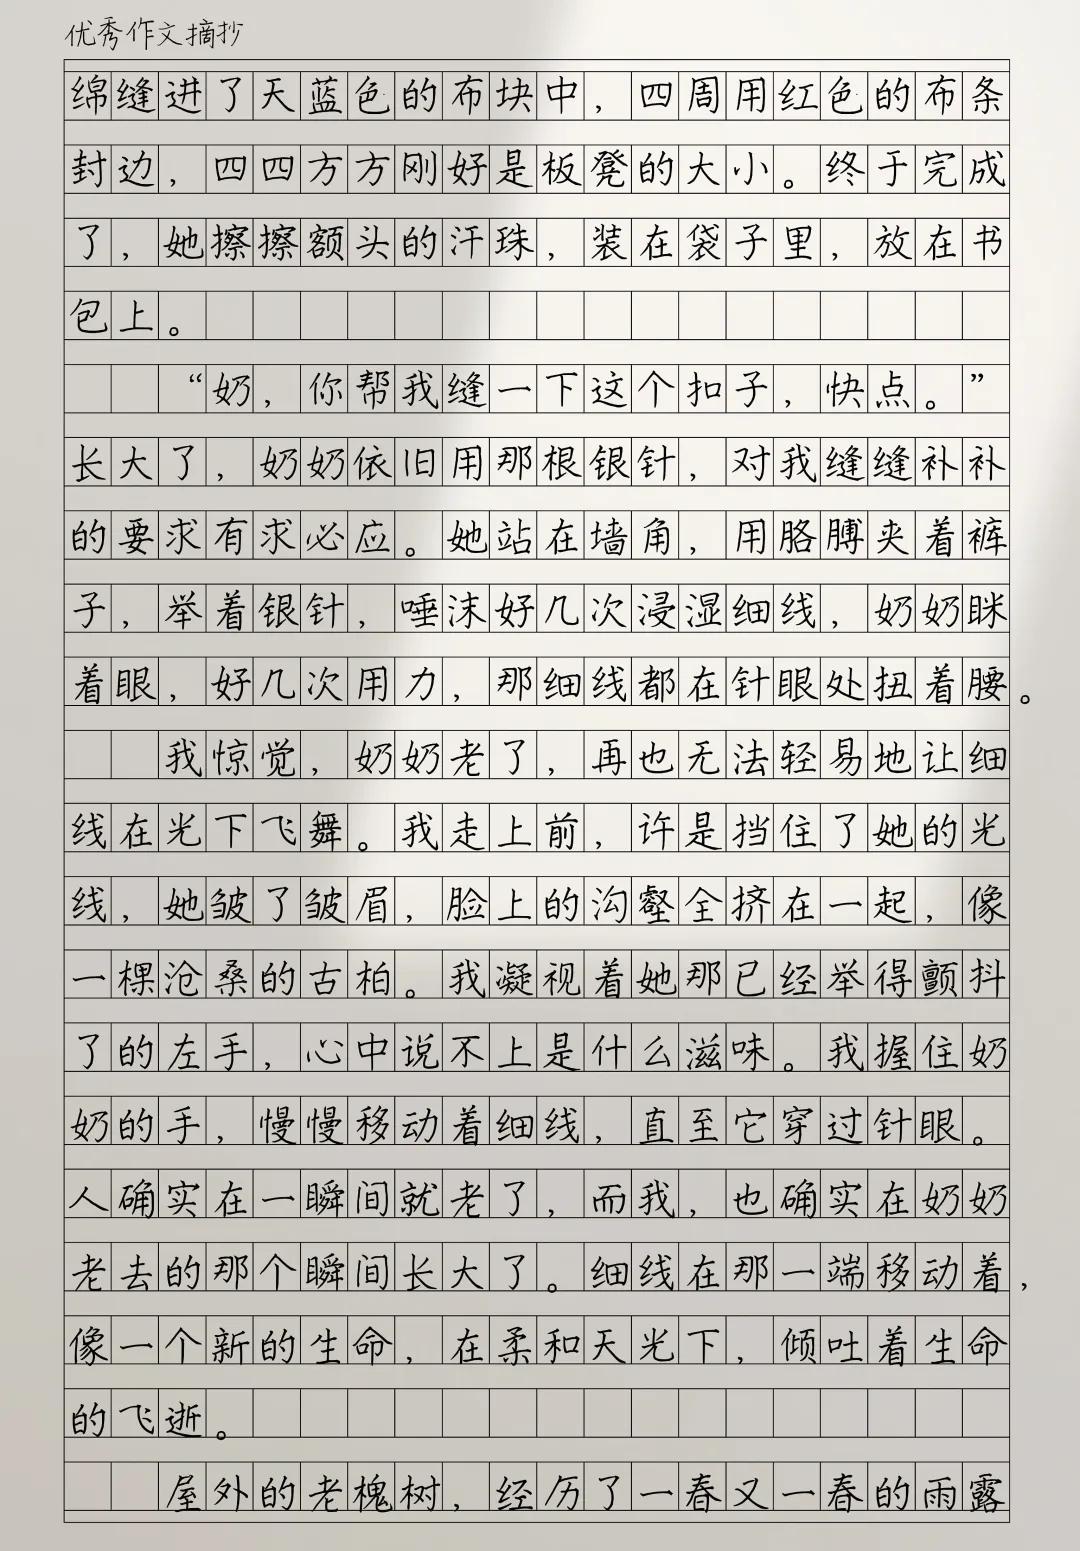 优秀作文摘抄
绵缝进了天蓝色的布块中，四周用红色的布条
封边，四四方方刚好是板凳的大小。终于完成
了，她擦擦额头的汗珠，装在袋子里，放在书
包上。
“奶，你帮我缝一下这个扣子，快点。”
长大了，奶奶依旧用那根银针，对我缝缝补补
的要求有求必应。她站在墙角，用胳膊夹着裤
子，举着银针，唾沫好几次浸湿细线，奶奶眯
着眼，好几次用力，那细线都在针眼处扭着腰。
我惊觉，奶奶老了，再也无法轻易地让细
线在光下飞舞。我走上前，许是挡住了她的光
线，她皱了皱眉，脸上的沟壑全挤在一起，像
一棵沧桑的古柏。我凝视着她那已经举得颤抖
了的左手，心中说不上是什么滋味。我握住奶
奶的手，慢慢移动着细线，直至它穿过针眼。
人确实在一瞬间就老了，而我，也确实在奶奶
老去的那个瞬间长大了。细线在那一端移动着，
像一个新的生命，在柔和天光下，倾吐着生命
的飞逝。
屋外的老槐树，经历了一春又一春的雨露